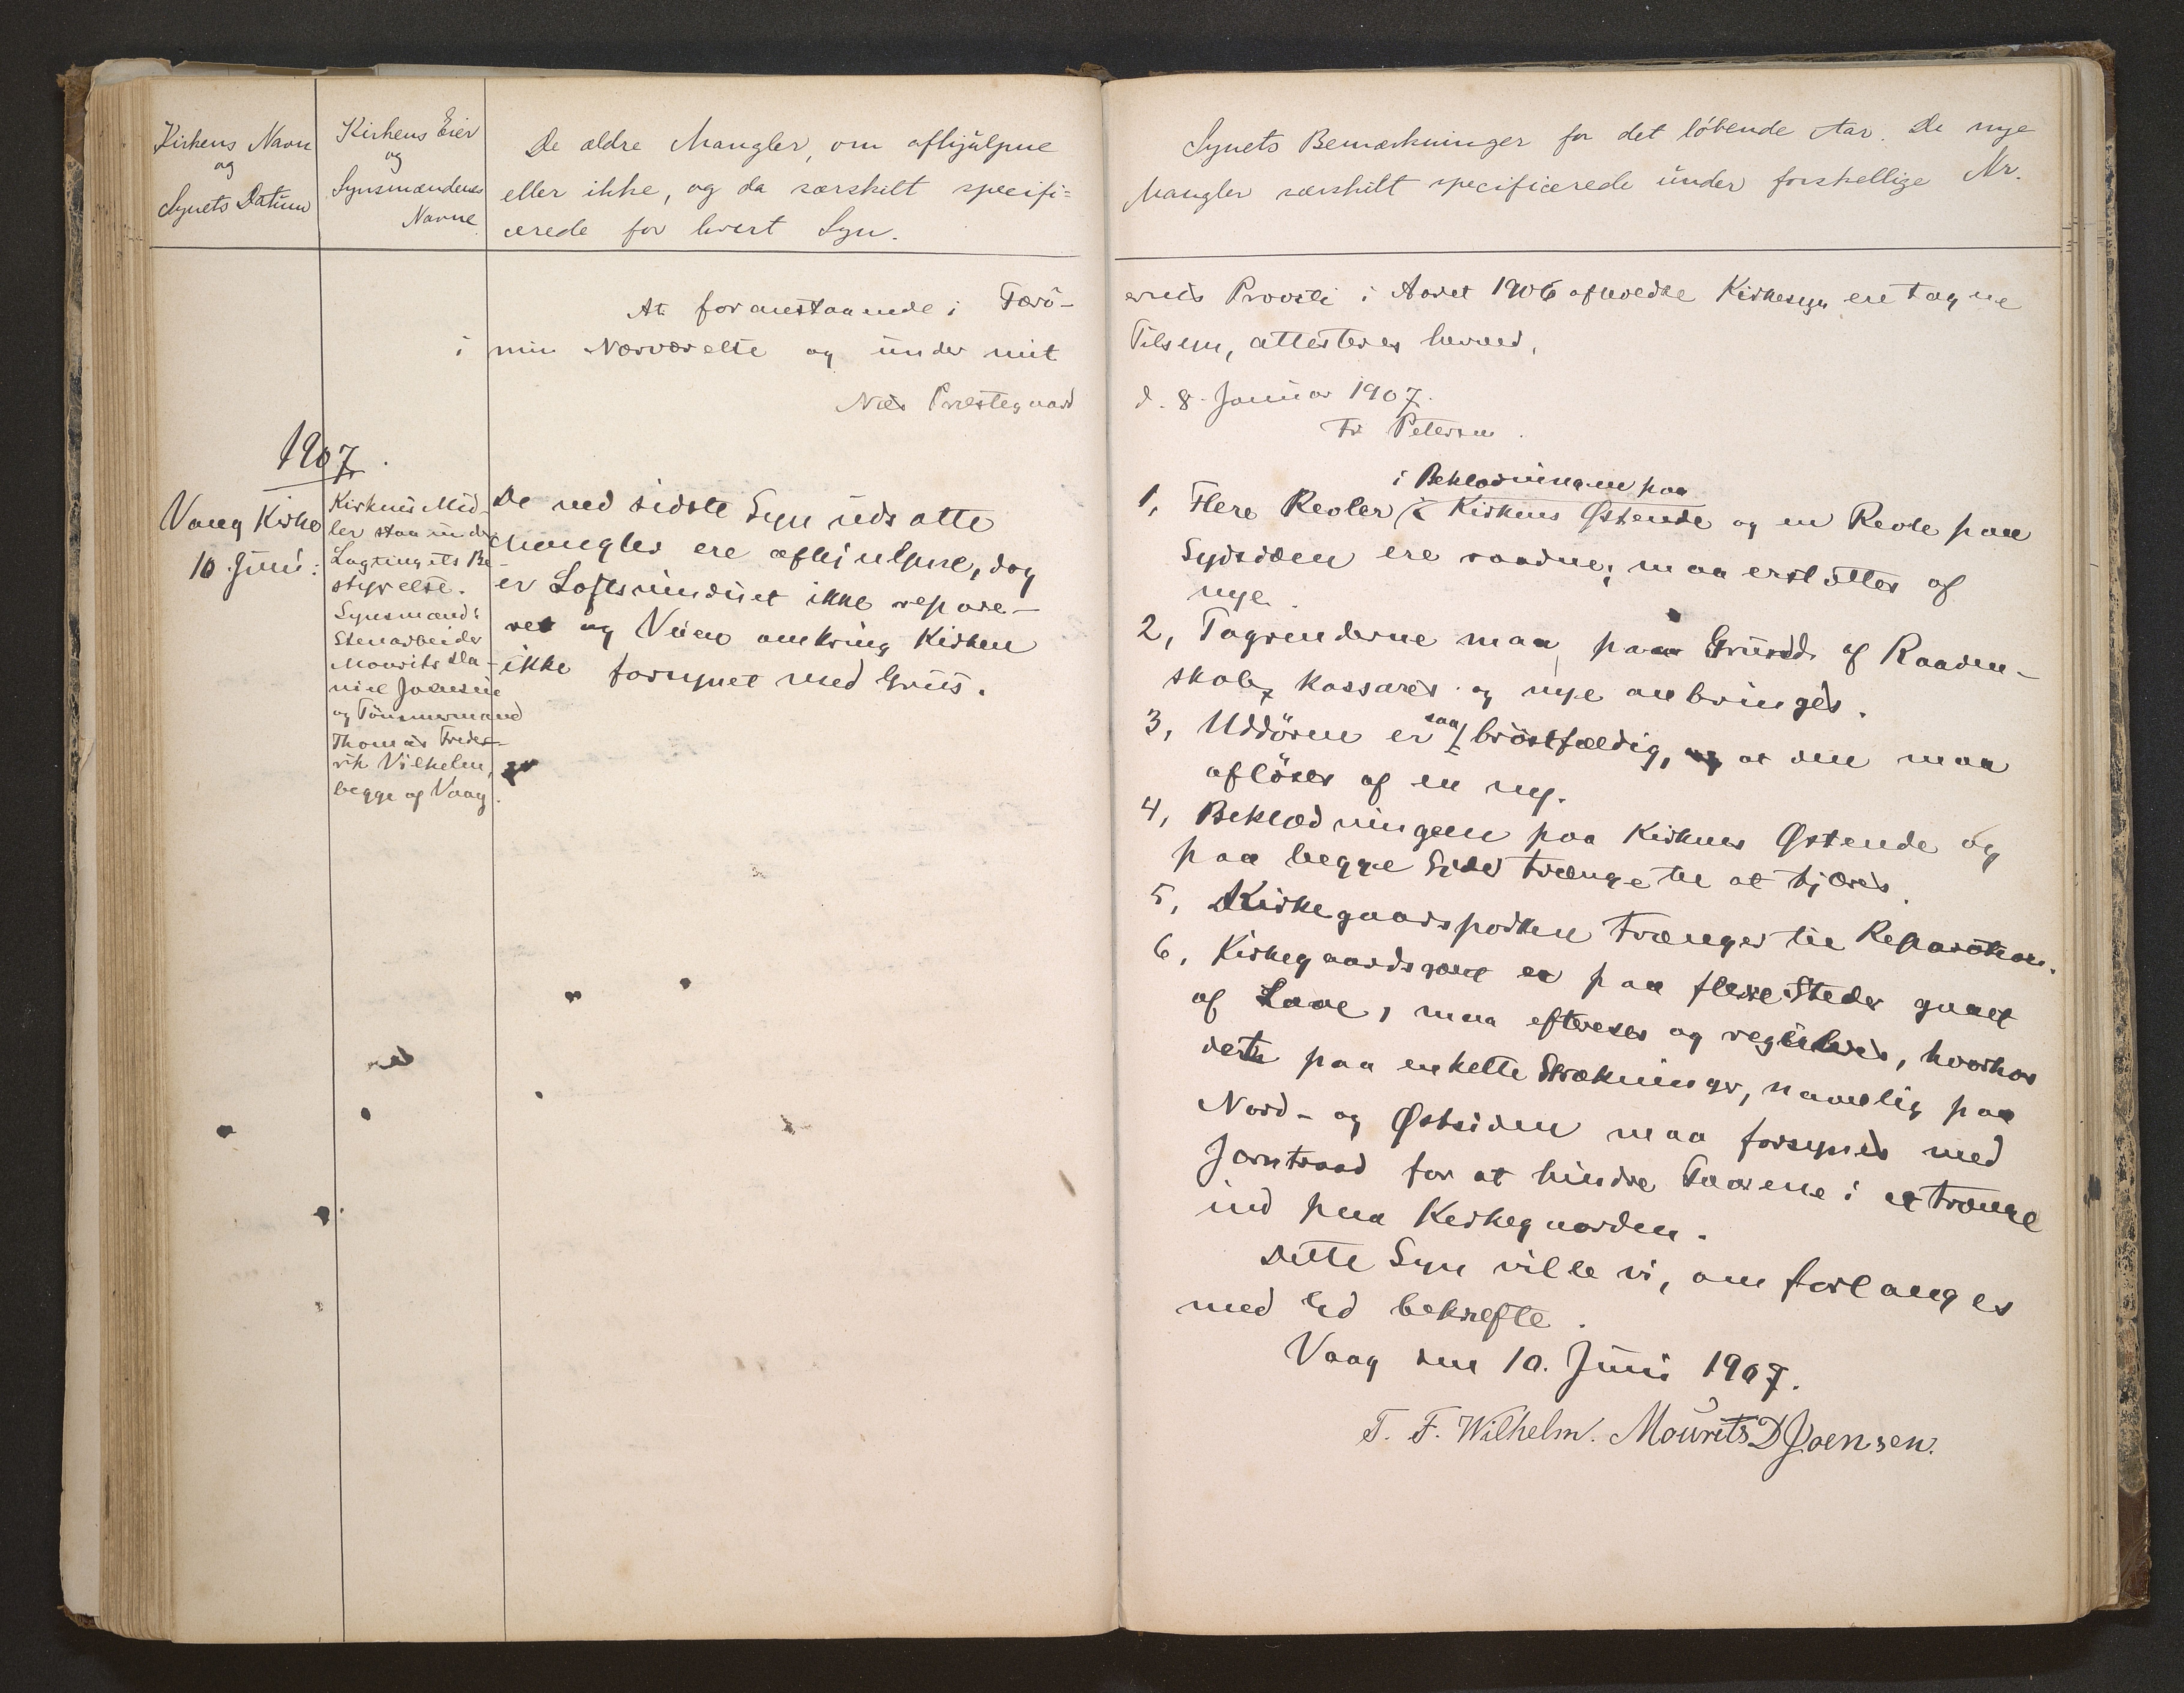 Kirkens Navn
og
Synets Datum
Kirkens Eier
og
Synsmændenes
Navne
De ældre Mangler, om afhjulpne
eller ikke, og da særskilt specifi=
cerede for hvert Syn.
At foranstaaende i Færö-
i min Nærværelse og under mit
Næs Præstegaard
1907.
Vaag Kirke
10 Juni:
Kirkens Mid-
ler staa under
Lagtingets Be-
styrelse.
Synsmænd:
Stenarbeider
Mourits Da-
niel Joensen
og Tömmermand
Thomas Frede-
rik Vilhelm,
begge af Vaag.
De ved sidste Syn udsatte
Mangler ere afhjulpne, dog
er Loftsvinduet ikke repare-
ret og Veien omkring Kirken
ikke forsynet med Grus.
Synets Bemærkninger for det löbende Aar. De nye
Mangler særskilt specificerede under forskellige Nr.
ernes Provsti i Aaret 1906 afholdte Kirkesyn ere tagne
Tilsyn, attesteres herved.
d. 8. Januar 1907.
Fr Petersen.
i Beklædningen paa
1, Flere Revler i Kirkens Østende og en Revle paa
Sydsiden ere raadne; maa erstattes af
nye.
2, Tagrenderne maa paa Grund af Raaden-
skab kasseres og nye anbringes.
3, Uddøren er saa bröstfældig, at den maa
aflöses af en ny.
4, Beklædningen paa Kirkens Østende og
paa begge Sider trænge til at tjæres.
5, Kirkegaardsporten trænger til Reparation.
6, Kirkegaardsgærdet er paa flere Steder gaaet
af Lave, maa efterses og reguleres, hvorhos
dette paa enkelte Strækninger, navnlig paa
Nord- og Østsiden maa forsynes med
Jerntraad for at hindre Faarene i at trænge
ind paa Kirkegaarden.
Dette Syn ville vi, om forlanges
med Ed bekræfte.
Vaag den 10. Juni 1907.
T. F. Wilhelm. Mourits D Joensen.